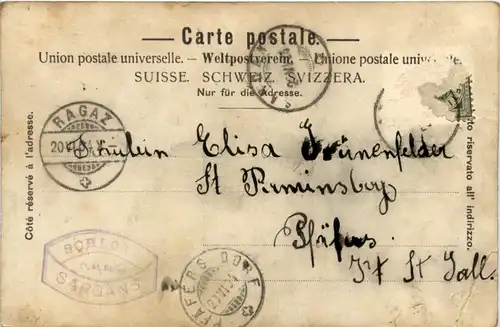 Carte postale.
Union postale universelle. — Weltpostverein. — Unione postale universale.
SUISSE. SCHWEIZ. SVIZZERA.
Nur für die Adresse.
Côté réservé à l'adresse.
Lato riservato all' indirizzo.
RAGAZ
20 VI
Fräulein Elisa Grünenfelder
St Pirminsberg
Pfäfers
Kt St Gall.
SCHLOSS
SARGANS
PFÄFERS DORF